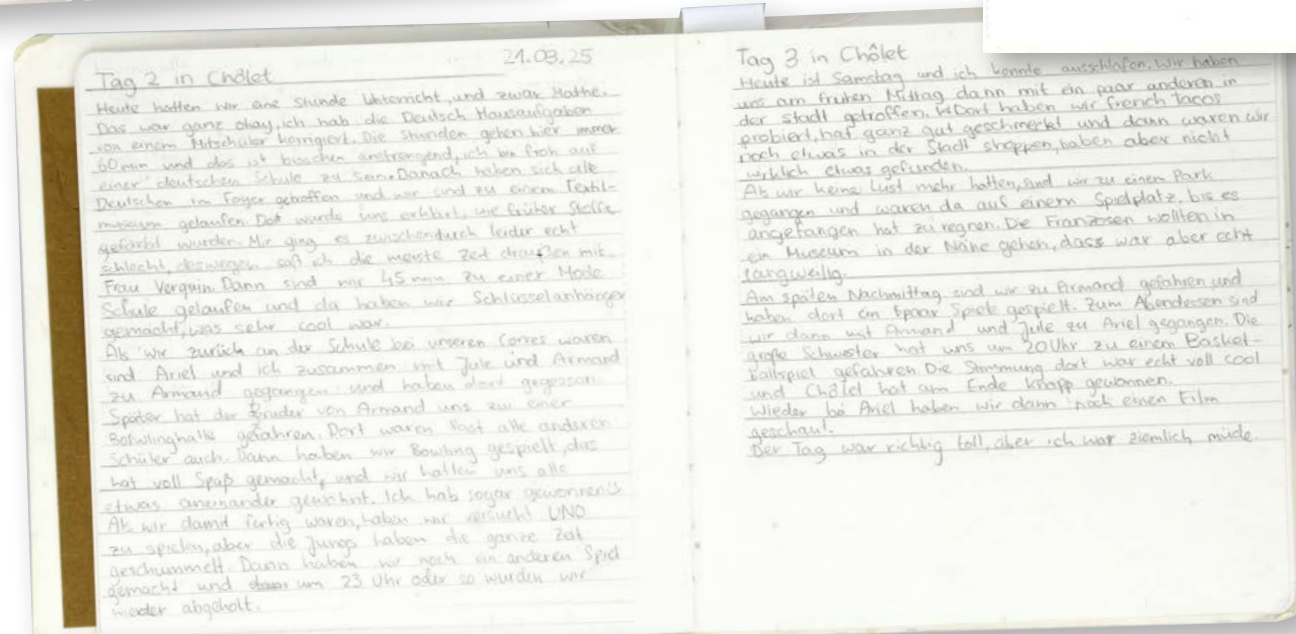 Tag 2 in Chôlet
21.03.25
Heute hatten wir eine Stunde Unterricht, und zwar Mathe.
Das war ganz okay, ich hab die Deutsch Hausaufgaben
von einem Mitschüler korrigiert. Die Stunden gehen hier immer
60 min und das ist bisschen anstrengend, ich bin froh auf
einer deutschen Schule zu sein. Danach haben sich alle
Deutschen im Foyer getroffen und wir sind zu einem Textil-
museum gelaufen. Dort wurde uns erklärt, wie früher Stoffe
gefärbt wurden. Mir ging es zwischendurch leider echt
schlecht, deswegen saß ich die meiste Zeit draußen mit
Frau Verquin. Dann sind wir 45 min zu einer Mode
Schule gelaufen und da haben wir Schlüsselanhänger
gemacht, was sehr cool war.
Als wir zurück an der Schule bei unseren Corres waren
sind Ariel und ich zusammen mit Jule und Armand
zu Armand gegangen und haben dort gegessen.
Später hat der Bruder von Armand uns zu einer
Bowlinghalle gefahren. Dort waren fast alle anderen
Schüler auch. Dann haben wir Bowling gespielt, das
hat voll Spaß gemacht, und wir hatten uns alle
etwas aneinander gewöhnt. Ich hab sogar gewonnen
Als wir damit fertig waren, haben wir versucht UNO
zu spielen, aber die Jungs haben die ganze Zeit
geschummelt. Dann haben wir noch ein anderen Spiel
gemacht und um 23 Uhr oder so wurden wir
wieder abgeholt.
Tag 3 in Chôlet
Heute ist Samstag und ich konnte ausschlafen. Wir haben
uns am frühen Mittag dann mit ein paar anderen in
der Stadt getroffen. Dort haben wir french Tacos
probiert, hat ganz gut geschmeckt und dann waren wir
noch etwas in der Stadt shoppen, haben aber nicht
wirklich etwas gefunden.
Als wir keine Lust mehr hatten, sind wir zu einen Park
gegangen und waren da auf einem Spielplatz, bis es
angefangen hat zu regnen. Die Franzosen wollten in
ein Museum in der Nähe gehen, dass war aber echt
langweilig.
Am späten Nachmittag sind wir zu Armand gefahren und
haben dort ein paar Spiele gespielt. Zum Abendessen sind
wir dann mit Armand und Jule zu Ariel gegangen. Die
große Schwester hat uns um 20 Uhr zu einem Basket-
ballspiel gefahren. Die Stimmung dort war echt voll cool
und Chôlet hat am Ende knapp gewonnen.
Wieder bei Ariel haben wir dann noch einen Film
geschaut.
Der Tag war richtig toll, aber ich war ziemlich müde.